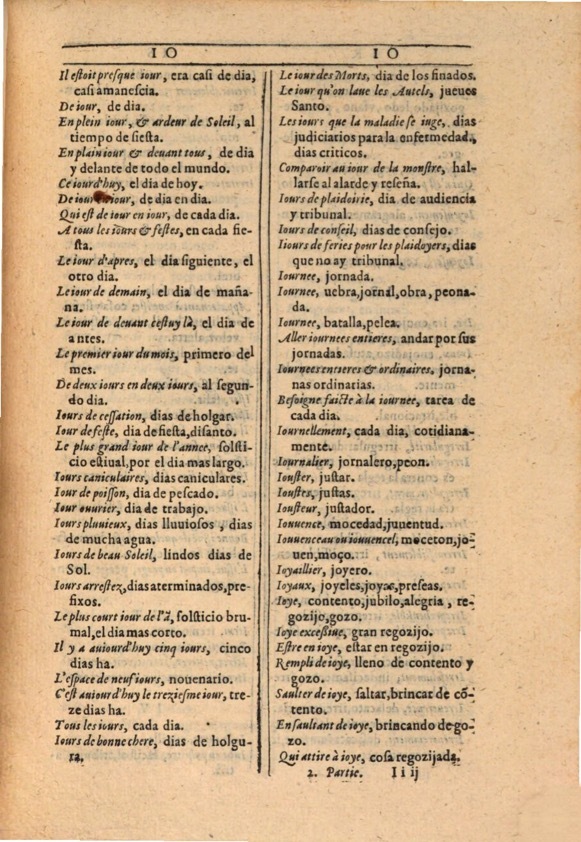 IO
IO
Il estoit presque iour, era casi de dia,
casi amanescia.
De iour, de dia.
En plein iour, & ardeur de Soleil, al
tiempo de siesta.
En plain iour & deuant tous, de dia
y delante de todo el mundo.
Ce iourd'huy, el dia de hoy.
De iour en iour, de dia en dia.
Qui est de iour en iour, de cada dia.
A tous les iours & festes, en cada fie-
sta.
Le iour d'apres, el dia siguiente, el
otro dia.
Le iour de demain, el dia de maña-
na.
Le iour de deuant cestuy là, el dia de
antes.
Le premier iour du mois, primero del
mes.
De deux iours en deux iours, al segun-
do dia.
Iours de cessation, dias de holgar.
Iour de feste, dia de fiesta, disanto.
Le plus grand iour de l'annee, solsti-
cio estiual, por el dia mas largo.
Iours caniculaires, dias caniculares.
Iour de poisson, dia de pescado.
Iour ouurier, dia de trabajo.
Iours pluuieux, dias lluuiosos, dias
de mucha agua.
Iours de beau Soleil, lindos dias de
Sol.
Iours arrestez, dias aterminados, pre-
fixos.
Le plus court iour de l'ã, solsticio bru-
mal, el dia mas corto.
Il y a auiourd'huy cinq iours, cinco
dias ha.
L'espace de neuf iours, nouenario.
C'est auiourd'huy le treziesme iour, tre-
ze dias ha.
Tous les iours, cada dia.
Iours de bonne chere, dias de holgu-
ra.
Le iour des Morts, dia de los finados.
Le iour qu'on laue les Autels, jueues
Santo.
Les iours que la maladie se iuge, dias
judiciarios para la enfermedad,
dias criticos.
Comparoir au iour de la monstre, hal-
larse al alarde y reseña.
Iours de plaidoirie, dia de audiencia
y tribunal.
Iours de conseil, dias de consejo.
Iiours de feries pour les plaidoyers, dias
que no ay tribunal.
Iournee, jornada.
Iournee, uebra, jornal, obra, peona-
da.
Iournee, batalla, pelea.
Aller iournees entieres, andar por sus
jornadas.
Iournees entieres & ordinaires, jorna-
nas ordinarias.
Besoigne faicte à la iournee, tarea de
cada dia.
Iournellement, cada dia, cotidiana-
mente.
Iournalier, jornalero, peon.
Iouster, justar.
Ioustes, justas.
Iousteur, justador.
Iouuence, mocedad, juuentud.
Iouuenceau ou iouuencel, moceton, jo-
uen, moço.
Ioyaillier, joyero.
Ioyaux, joyeles, joyas, preseas.
Ioye, contento, jubilo, alegria, re-
gozijo, gozo.
Ioye excessiue, gran regozijo.
Estre en ioye, estar en regozijo.
Rempli de ioye, lleno de contento y
gozo.
Saulter de ioye, saltar, brincar de cõ-
tento.
En saultant de ioye, brincando de go-
zo.
Qui attire à ioye, cosa regozijada.
2. Partie. Ii ij